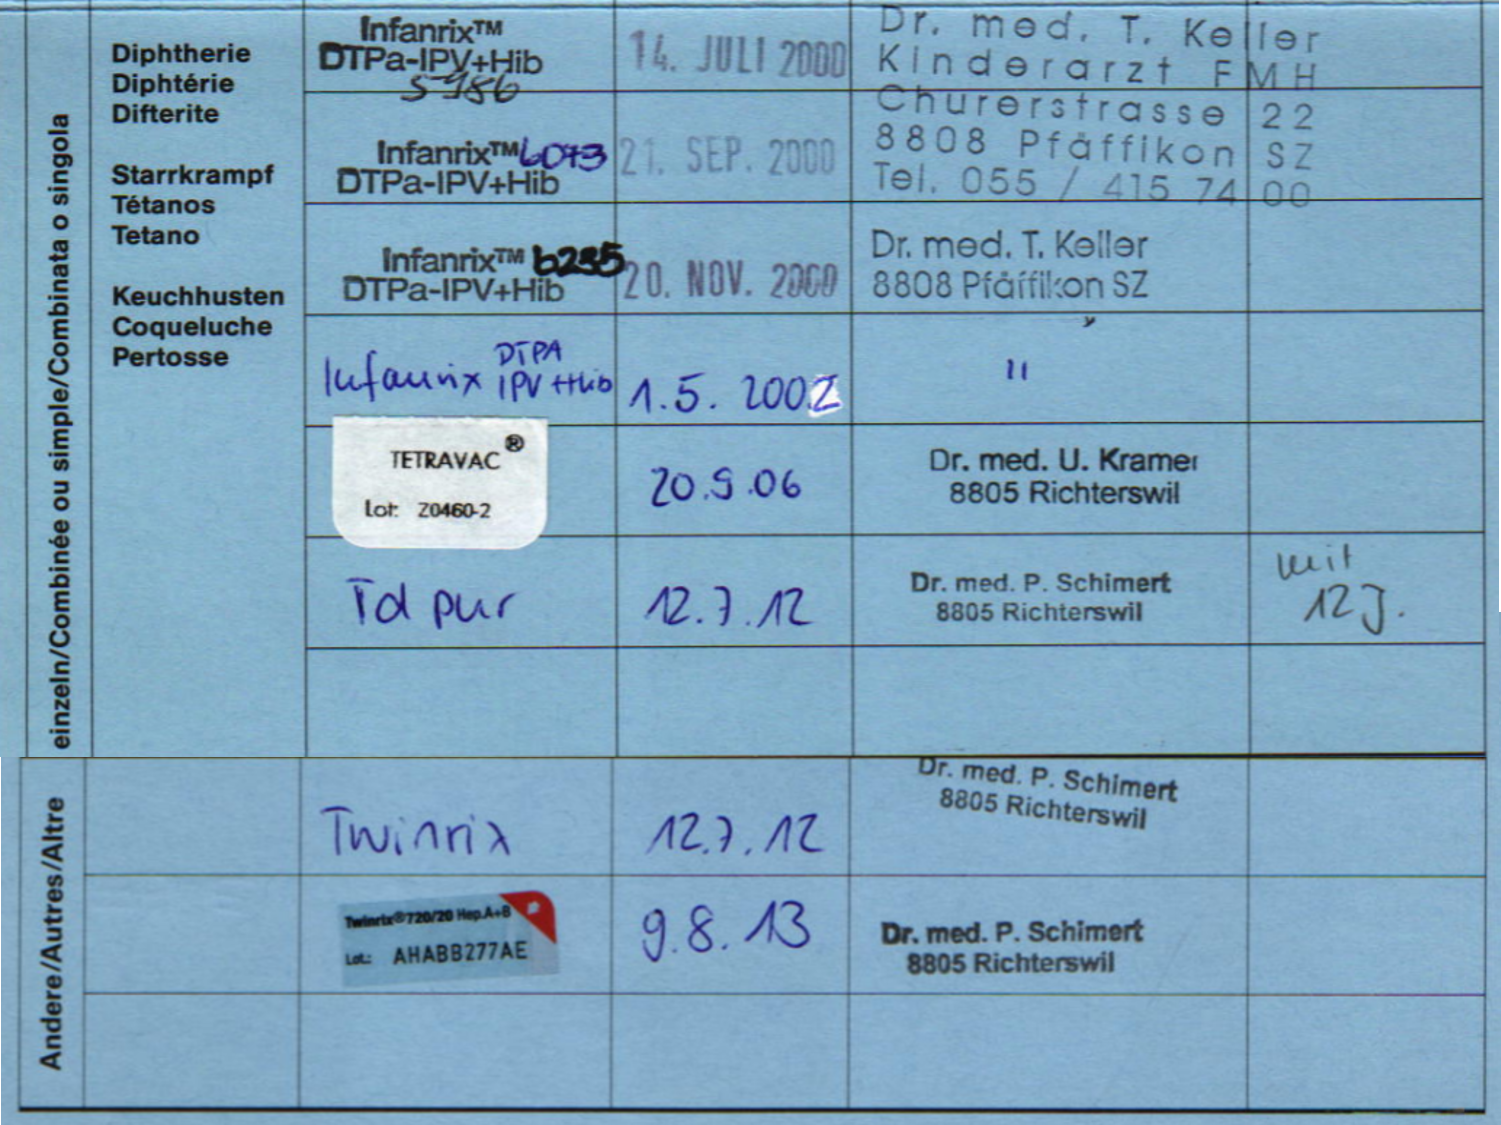 einzeln/Combinée ou simple/Combinata o singola
Diphtherie
Diphtérie
Difterite
Starrkrampf
Tétanos
Tetano
Keuchhusten
Coqueluche
Pertosse
Infanrix™
DTPa-IPV+Hib
5986
14. JULI 2000
Dr. med. T. Keller
Kinderarzt FMH
Churerstrasse 22
8808 Pfäffikon SZ
Tel. 055 / 415 74 00
Infanrix™ 6073
DTPa-IPV+Hib
21. SEP. 2000
Infanrix™ 6235
DTPa-IPV+Hib
20. NOV. 2000
Dr. med. T. Keller
8808 Pfäffikon SZ
Infanrix DTPA
IPV+Hib
1.5.2002
"
TETRAVAC®
Lot: Z0460-2
20.9.06
Dr. med. U. Kramer
8805 Richterswil
Td pur
12.7.12
Dr. med. P. Schimert
8805 Richterswil
mit
12 J.
Andere/Autres/Altre
Twinrix
12.7.12
Dr. med. P. Schimert
8805 Richterswil
Twinrix®720/20 Hep.A+B
Lot.: AHABB277AE
9.8.13
Dr. med. P. Schimert
8805 Richterswil